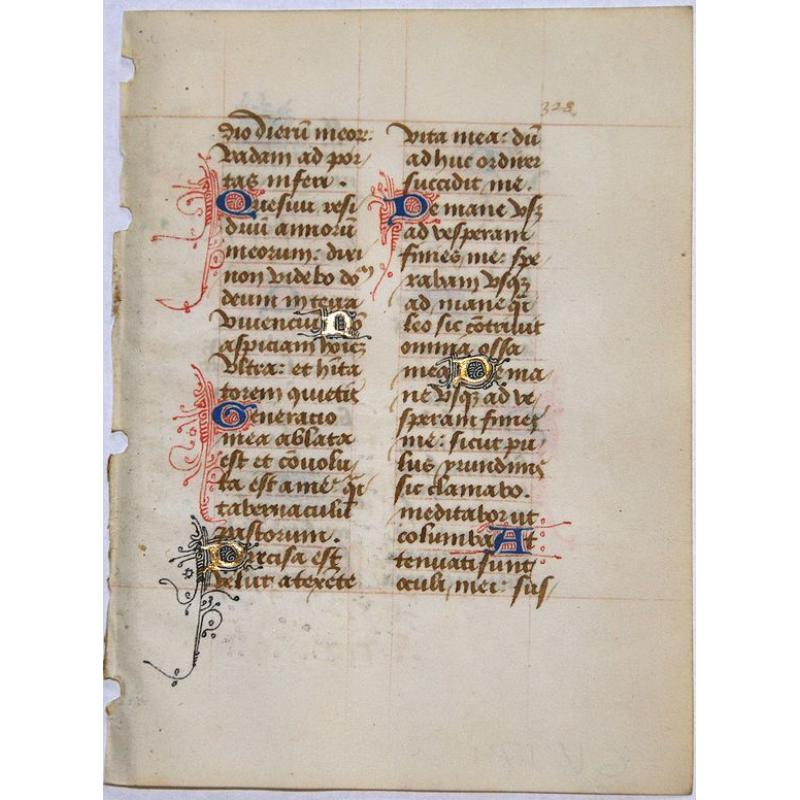 328
dio dierū meor:
Vadam ad por/
tas inferi.
Quesiui resi
duū annorū
meorum: dixi
non videbo dom̄
deum in terra
viuenciū Nō
aspiciam hoīez
vltra: et hīta
torem quietis
Generacio
mea ablata
est et cōuolu/
ta est a me q̄i
tabernaculū
pastorum.
Precisa est
velut a texēte
vita mea: dū
adhuc ordirer
succidit me.
De mane vsqz
ad vesperam
finies me: spe
rabam vsqz
ad mane q̄i
leo sic cōtriuit
omnia ossa
mea De ma/
ne vsqz ad ve/
speram finies
me: sicut pu/
lus yrundinis
sic clamabo.
meditabor ut
columba At
tenuati sunt
oculi mei: sus/